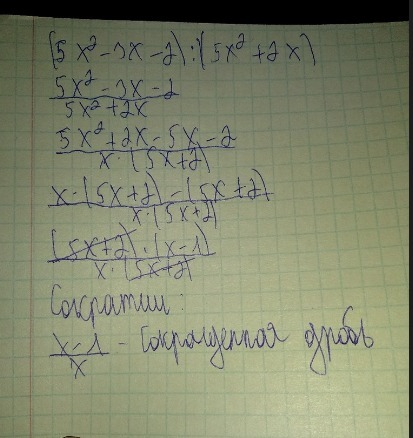 (5x²-3x-2):(5x²+2x)
5x²-3x-2
5x²+2x
5x²+2x-5x-2
x·(5x+2)
x·(5x+2)-(5x+2)
x·(5x+2)
(5x+2)·(x-1)
x·(5x+2)
Сократим:
x-1
x
- Сокращенная дробь